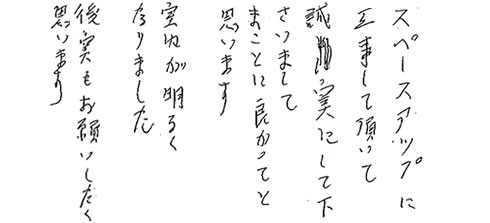 スペースアップに
工事して頂いて
誠実にして下
さいまして
まことに良かってと
思います
室内が明るく
なりました
後実もお願いしたく
思います